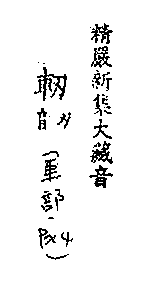 精嚴新集大藏音
軔刃音(車部